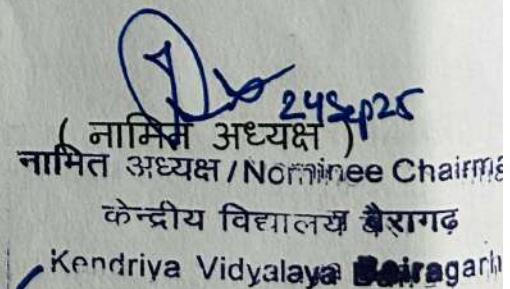 24Sep25
( नामित अध्यक्ष )
नामित अध्यक्ष / Nominee Chairma
केन्द्रीय विद्यालय बैरागढ़
Kendriya Vidyalaya Bairagarh